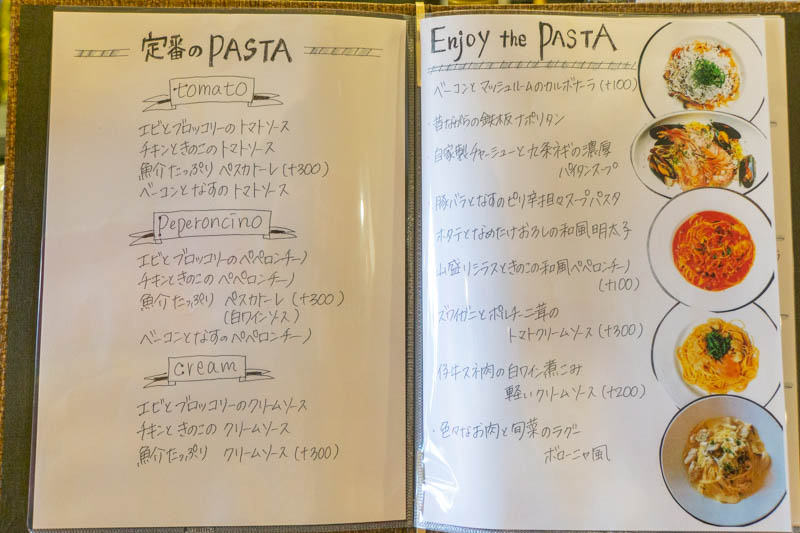 定番の PASTA
tomato
エビとブロッコリーのトマトソース
チキンときのこのトマトソース
魚介たっぷり ペスカトーレ (+300)
ベーコンとなすのトマトソース
Peperoncino
エビとブロッコリーのペペロンチーノ
チキンときのこのペペロンチーノ
魚介たっぷり ペスカトーレ (+300)
(白ワインソース)
ベーコンとなすのペペロンチーノ
cream
エビとブロッコリーのクリームソース
チキンときのこのクリームソース
魚介たっぷり クリームソース (+300)
Enjoy the PASTA
ベーコンとマッシュルームのカルボナーラ (+100)
・昔ながらの鉄板ナポリタン
・自家製チャーシューと九条ネギの濃厚
パイタンスープ
・豚バラとなすのピリ辛担々スープパスタ
・ホタテとなめたけおろしの和風明太子
・山盛りシラスときのこの和風ペペロンチーノ
(+100)
・ズワイガニとポルチーニ茸の
トマトクリームソース (+300)
・仔牛スネ肉の白ワイン煮こみ
軽いクリームソース (+200)
・色々なお肉と旬菜のラグー
ボローニャ風